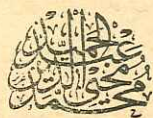 محمد
محيي الدين
عبد الحميد